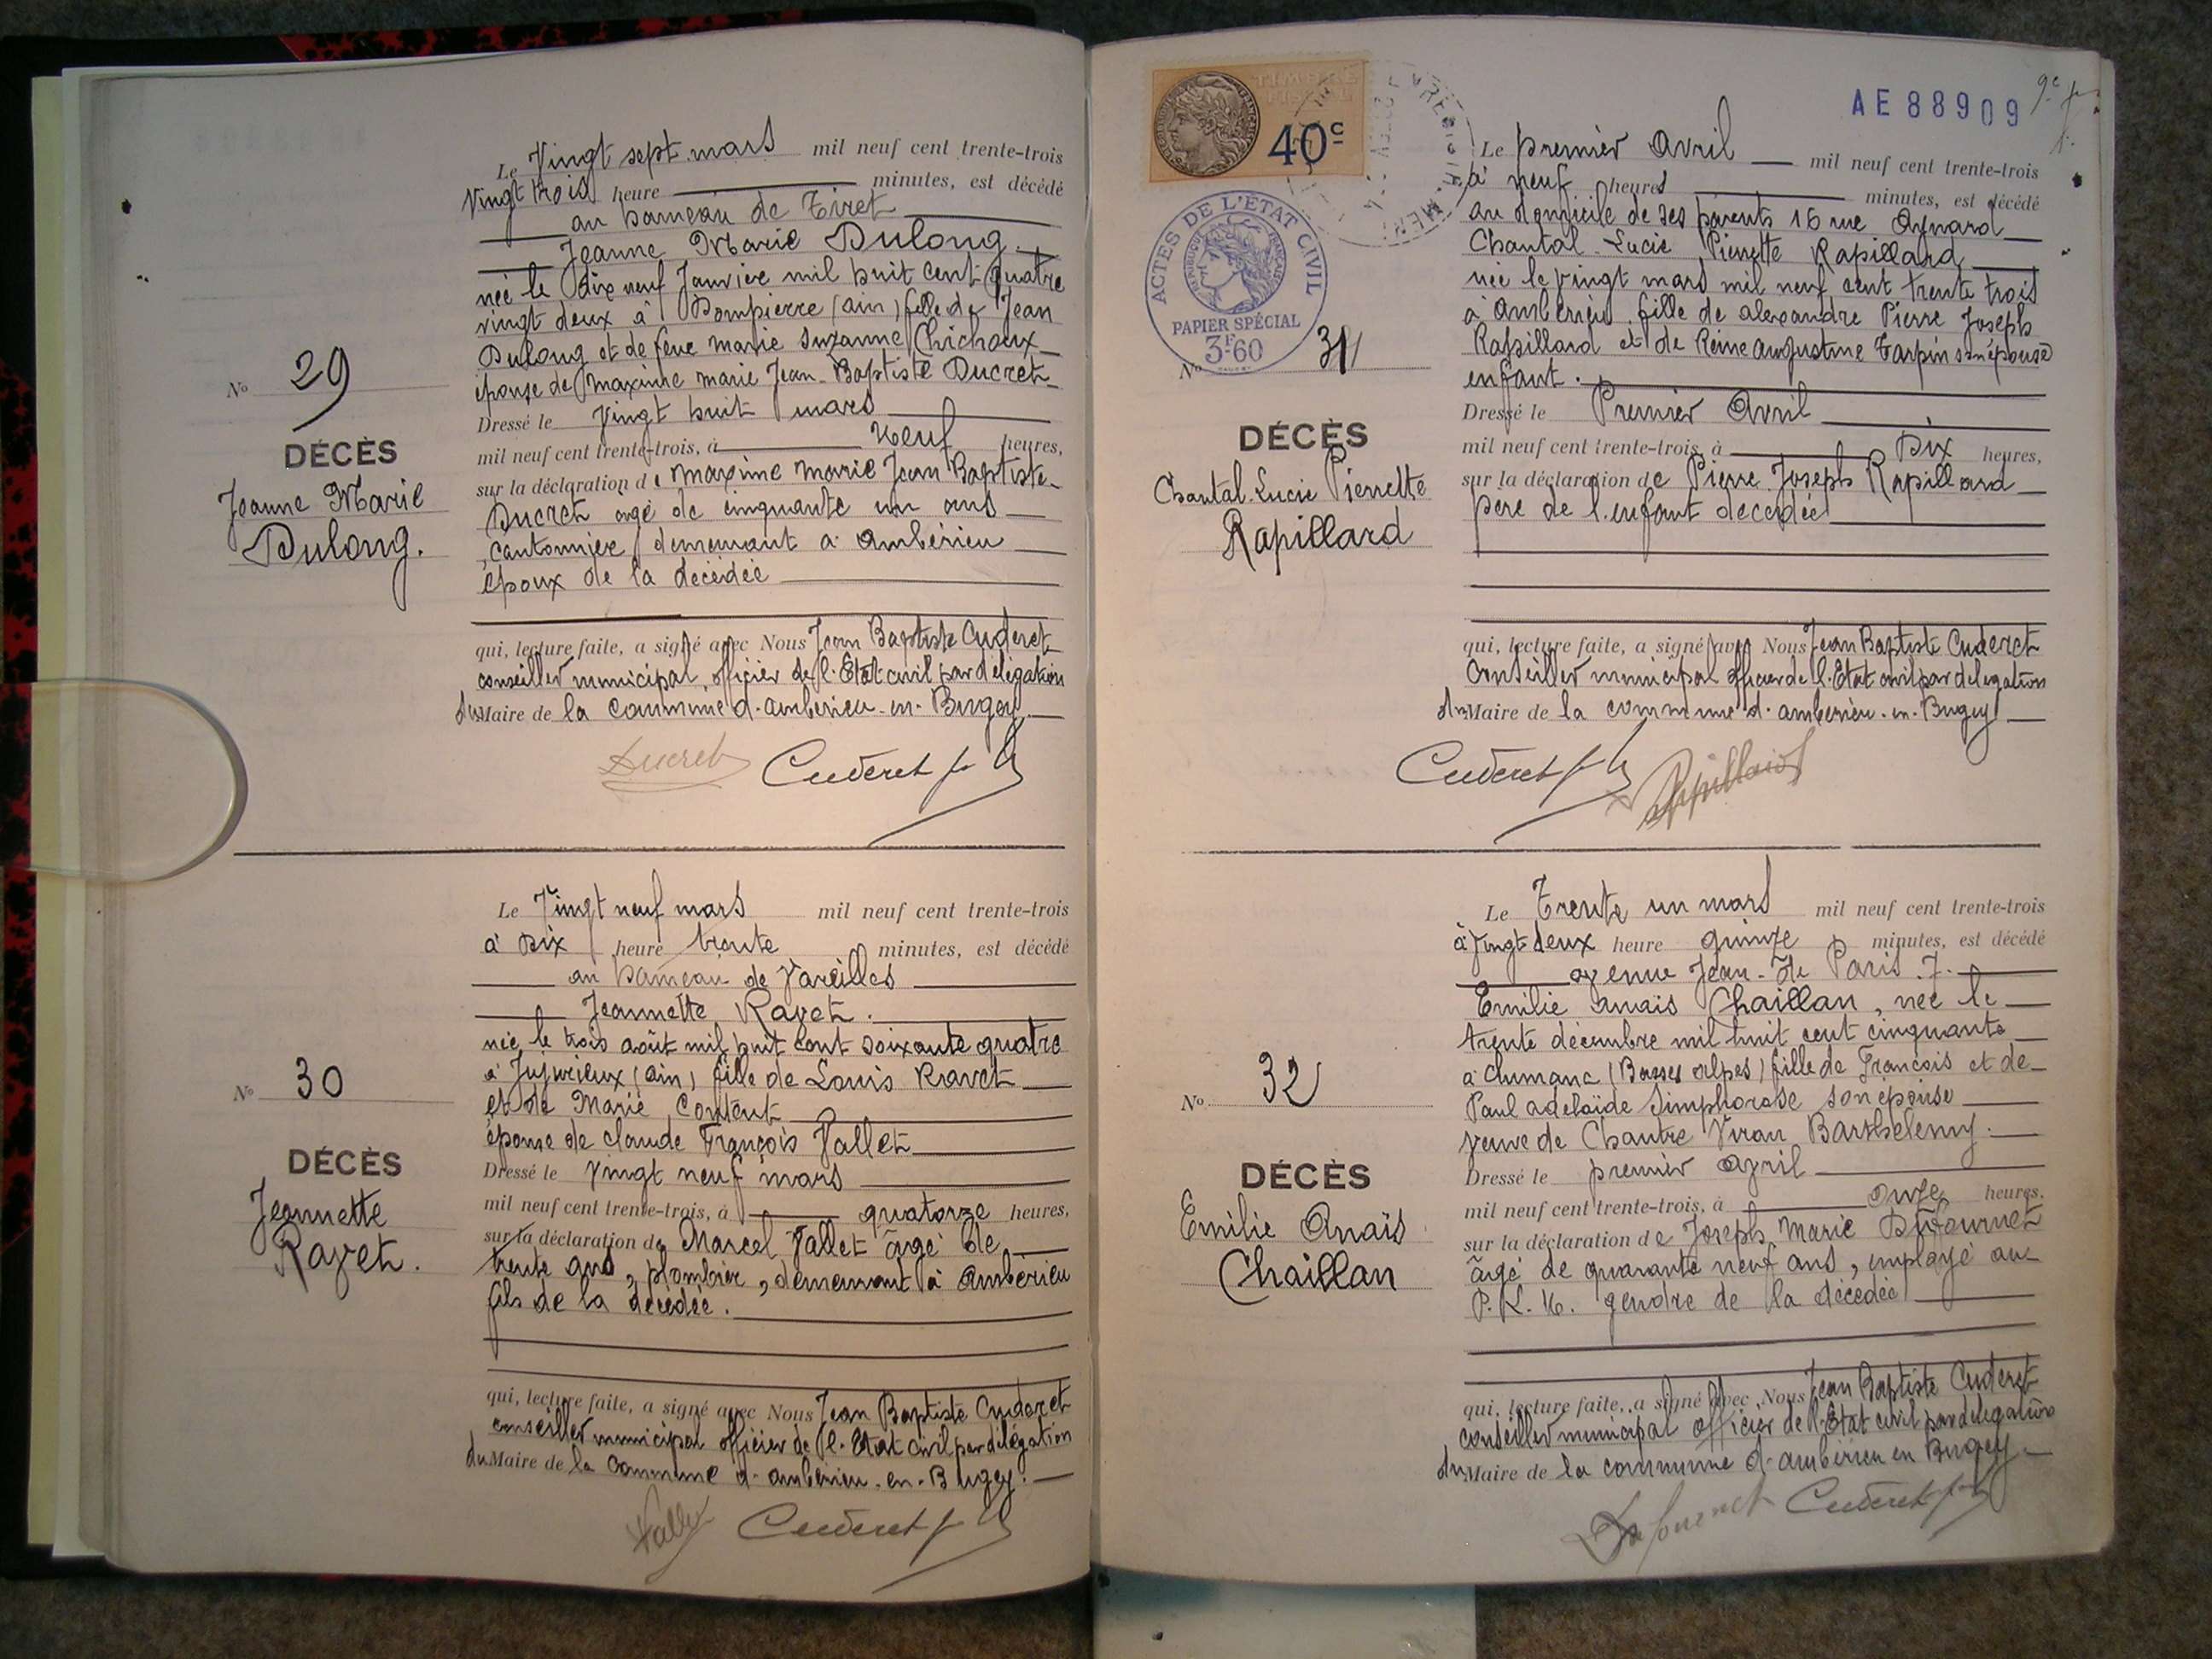 Le Vingt sept mars mil neuf cent trente-trois
Vingt trois heure minutes, est décédé
au hameau de Tiret
Jeanne Marie Dulong
née le dix neuf Janvier mil huit cent quatre
vingt deux à Dompierre (ain) fille de Jean
Dulong et de feue marie Suzanne Chichoux
épouse de maxime marie Jean-Baptiste Ducret
No 29
DÉCÈS
Jeanne Marie
Dulong.
Dressé le Vingt huit mars
mil neuf cent trente-trois, à Neuf heures,
sur la déclaration de Maxime Marie Jean Baptiste
Ducret âgé de cinquante un ans
cantonnier demeurant à Ambérieu
époux de la décédée
qui, lecture faite, a signé avec Nous Jean Baptiste Cuderet
conseiller municipal, officier de l'Etat civil par délégation
du Maire de la commune d'ambérieu-en-Bugey
Ducret Cuderet
Le Vingt neuf mars mil neuf cent trente-trois
à Dix heure trente minutes, est décédé
au hameau de Vareilles
Jeannette Ravet.
née le trois août mil huit cent soixante quatre
à Jujurieux (ain) fille de Louis Ravet
et de Marie Content
épouse de claude François Vallet
No 30
DÉCÈS
Jeannette
Ravet.
Dressé le Vingt neuf mars
mil neuf cent trente-trois, à quatorze heures,
sur la déclaration de Marcel Vallet âgé de
trente ans, plombier, demeurant à Ambérieu
fils de la décédée.
qui, lecture faite, a signé avec Nous Jean Baptiste Cuderet
conseiller municipal officier de l'Etat civil par délégation
du Maire de la commune d'ambérieu-en-Bugey.
Vallet Cuderet
TIMBRE
FISCAL
40c
AE88909
ACTES DE L'ÉTAT CIVIL
RÉPUBLIQUE FRANÇAISE
PAPIER SPÉCIAL
3F60
Le premier Avril mil neuf cent trente-trois
à neuf heures minutes, est décédé
au domicile de ses parents 16 rue Aynard
Chantal-Lucie Pierrette Rapillard
née le vingt mars mil neuf cent trente trois
à Ambérieu, fille de alexandre Pierre Joseph
Rapillard et de Reine Augustine Tarpin son épouse
enfant.
No 31
DÉCÈS
Chantal Lucie Pierrette
Rapillard
Dressé le Premier Avril
mil neuf cent trente-trois, à Dix heures,
sur la déclaration de Pierre Joseph Rapillard
père de l'enfant décédée
qui, lecture faite, a signé avec Nous Jean Baptiste Cuderet
Conseiller municipal officier de l'Etat civil par delegation
du Maire de la commune d'ambérieu-en-Bugey
Cuderet Rapillard
Le Trente un mars mil neuf cent trente-trois
à vingt deux heure quinze minutes, est décédé
avenue Jean-de Paris 7.
Emilie anais Chaillan, née le
trente décembre mil huit cent cinquante
à Aumanc (Basses alpes) fille de François et de
Paul adelaïde Simphorose son épouse
veuve de Chautre Viran Barthelemy.
No 32
DÉCÈS
Emilie Anaïs
Chaillan
Dressé le premier avril
mil neuf cent trente-trois, à onze heures,
sur la déclaration de Joseph Marie Dufournet
âgé de quarante neuf ans, employé au
P. L. M. gendre de la décédée
qui, lecture faite, a signé avec Nous Jean Baptiste Cuderet
conseiller municipal officier de l'Etat civil par delegation
du Maire de la commune d'ambérieu en Bugey
Dufournet Cuderet